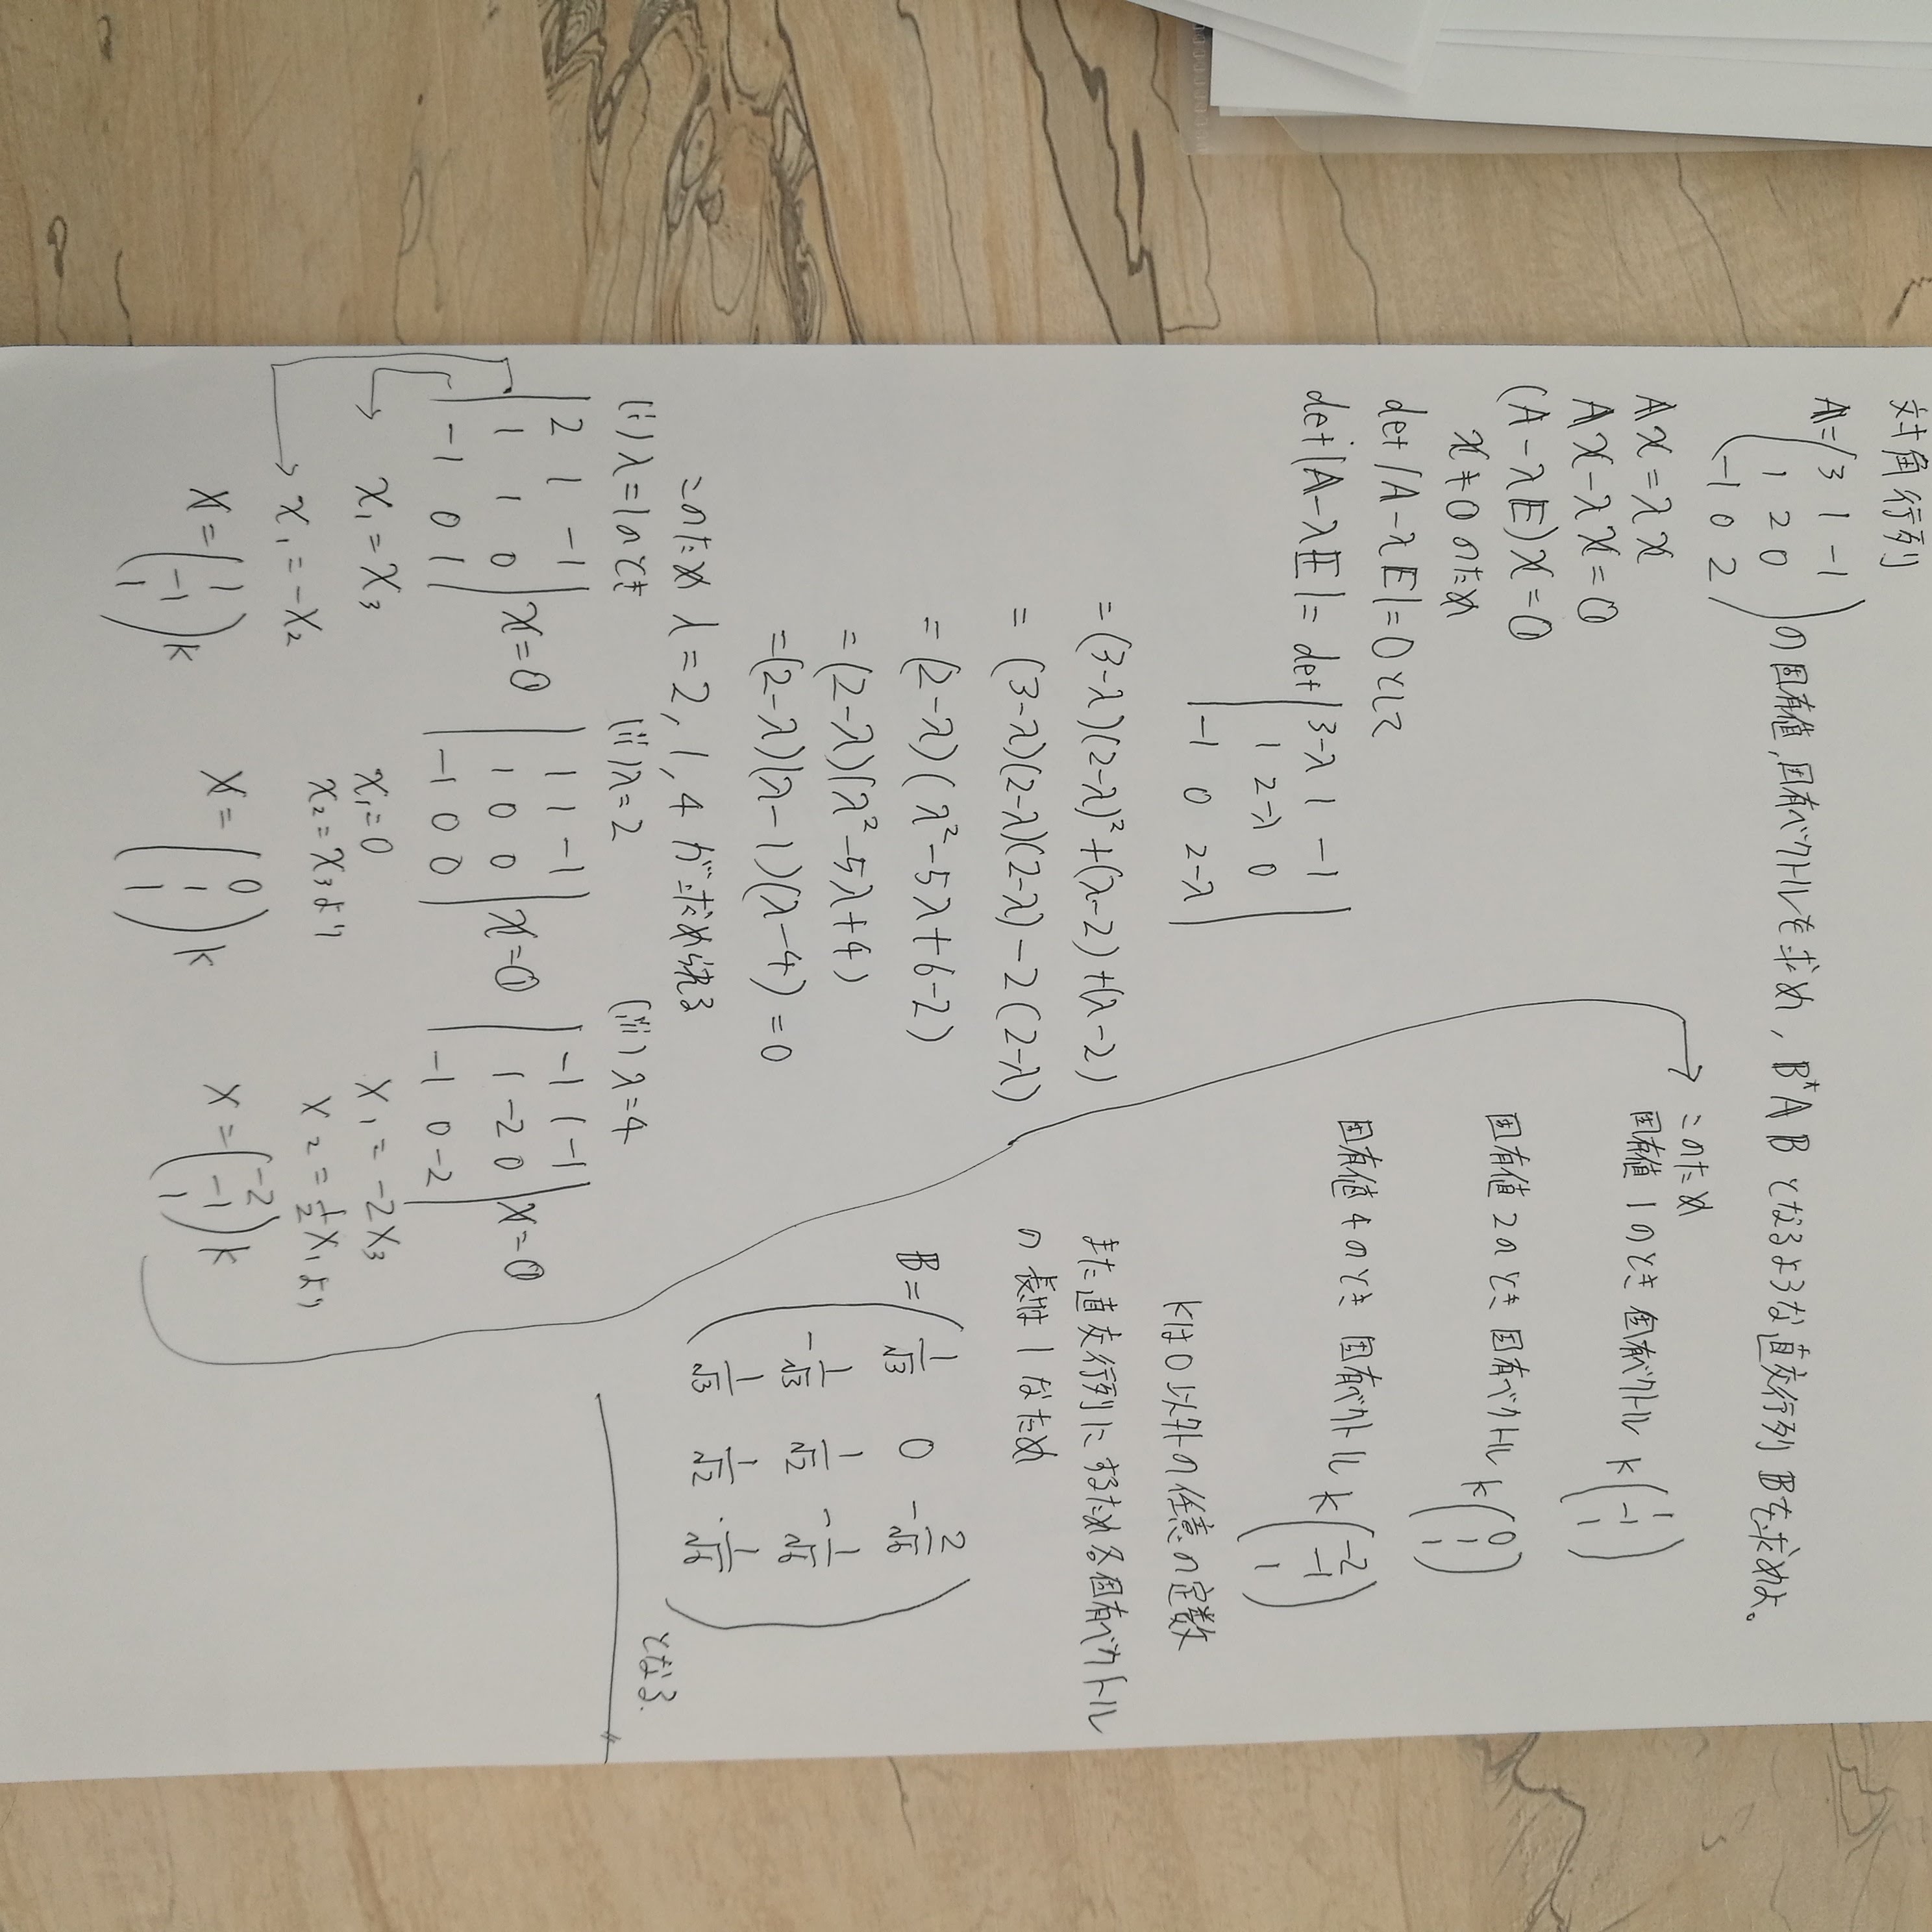 対角行列
A=(3 1 -1
1 2 0
-1 0 2)の固有値,固有ベクトルを求め, B*ABとなるような直交行列Bを求めよ。
Ax=λx
Ax-λx=0
(A-λE)x=0
x≠0のため
det|A-λE|=0として
det|A-λE|=det|3-λ 1 -1
1 2-λ 0
-1 0 2-λ|
=(3-λ)(2-λ)²+(λ-2)+(λ-2)
=(3-λ)(2-λ)(2-λ)-2(2-λ)
=(2-λ)(λ²-5λ+6-2)
=(2-λ)(λ²-5λ+4)
=(2-λ)(λ-1)(λ-4)=0
このためλ=2,1,4が求められる
(i)λ=1のとき
|2 1 -1
1 1 0
-1 0 1|x=0
x₁=x₃
x₁=-x₂
x=(1
-1
1)k
(ii)λ=2
|1 1 -1
1 0 0
-1 0 0|x=0
x₁=0
x₂=x₃より
x=(0
1
1)k
(iii)λ=4
|-1 1 -1
1 -2 0
-1 0 -2|x=0
x₁=-2x₃
x₂=1/2x₁より
x=(-2
-1
1)k
このため
固有値1のとき固有ベクトルk(1
-1
1)
固有値2のとき固有ベクトルk(0
1
1)
固有値4のとき固有ベクトルk(-2
-1
1)
kは0以外の任意の定数
また直交行列にするため各固有ベクトル
の長さは1なため
B=(1/√3 0 -2/√6
-1/√3 1/√2 -1/√6
1/√3 1/√2 1/√6)
となる.